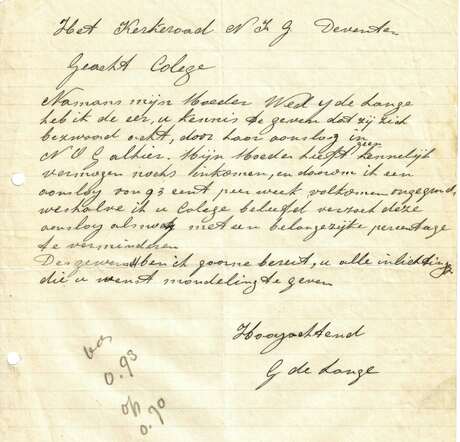 Het Kerkeraad N I G Deventer
Geacht Colege
Namans mijn Moeder Wed Y de Lange
heb ik de eer, u kennis te geven dat zij zich
bezwaard acht, door haar aanslag in
N I G alhier. Mijn Moeder heeft geen kennelijk
vermogen noch inkomen, en daarom ik een
aanslag van 93 cent per week volkomen ongegrond,
weshalve ik u Colege beleefd verzoek deze
aanslag alsnog met een belangrijke percentage
te verminderen
Desgewenst ben ik gaarne bereid, u alle inlichting
die u wenst mondeling te geven
Hoogachtend
G de Lange
van
0.93
op
0.70